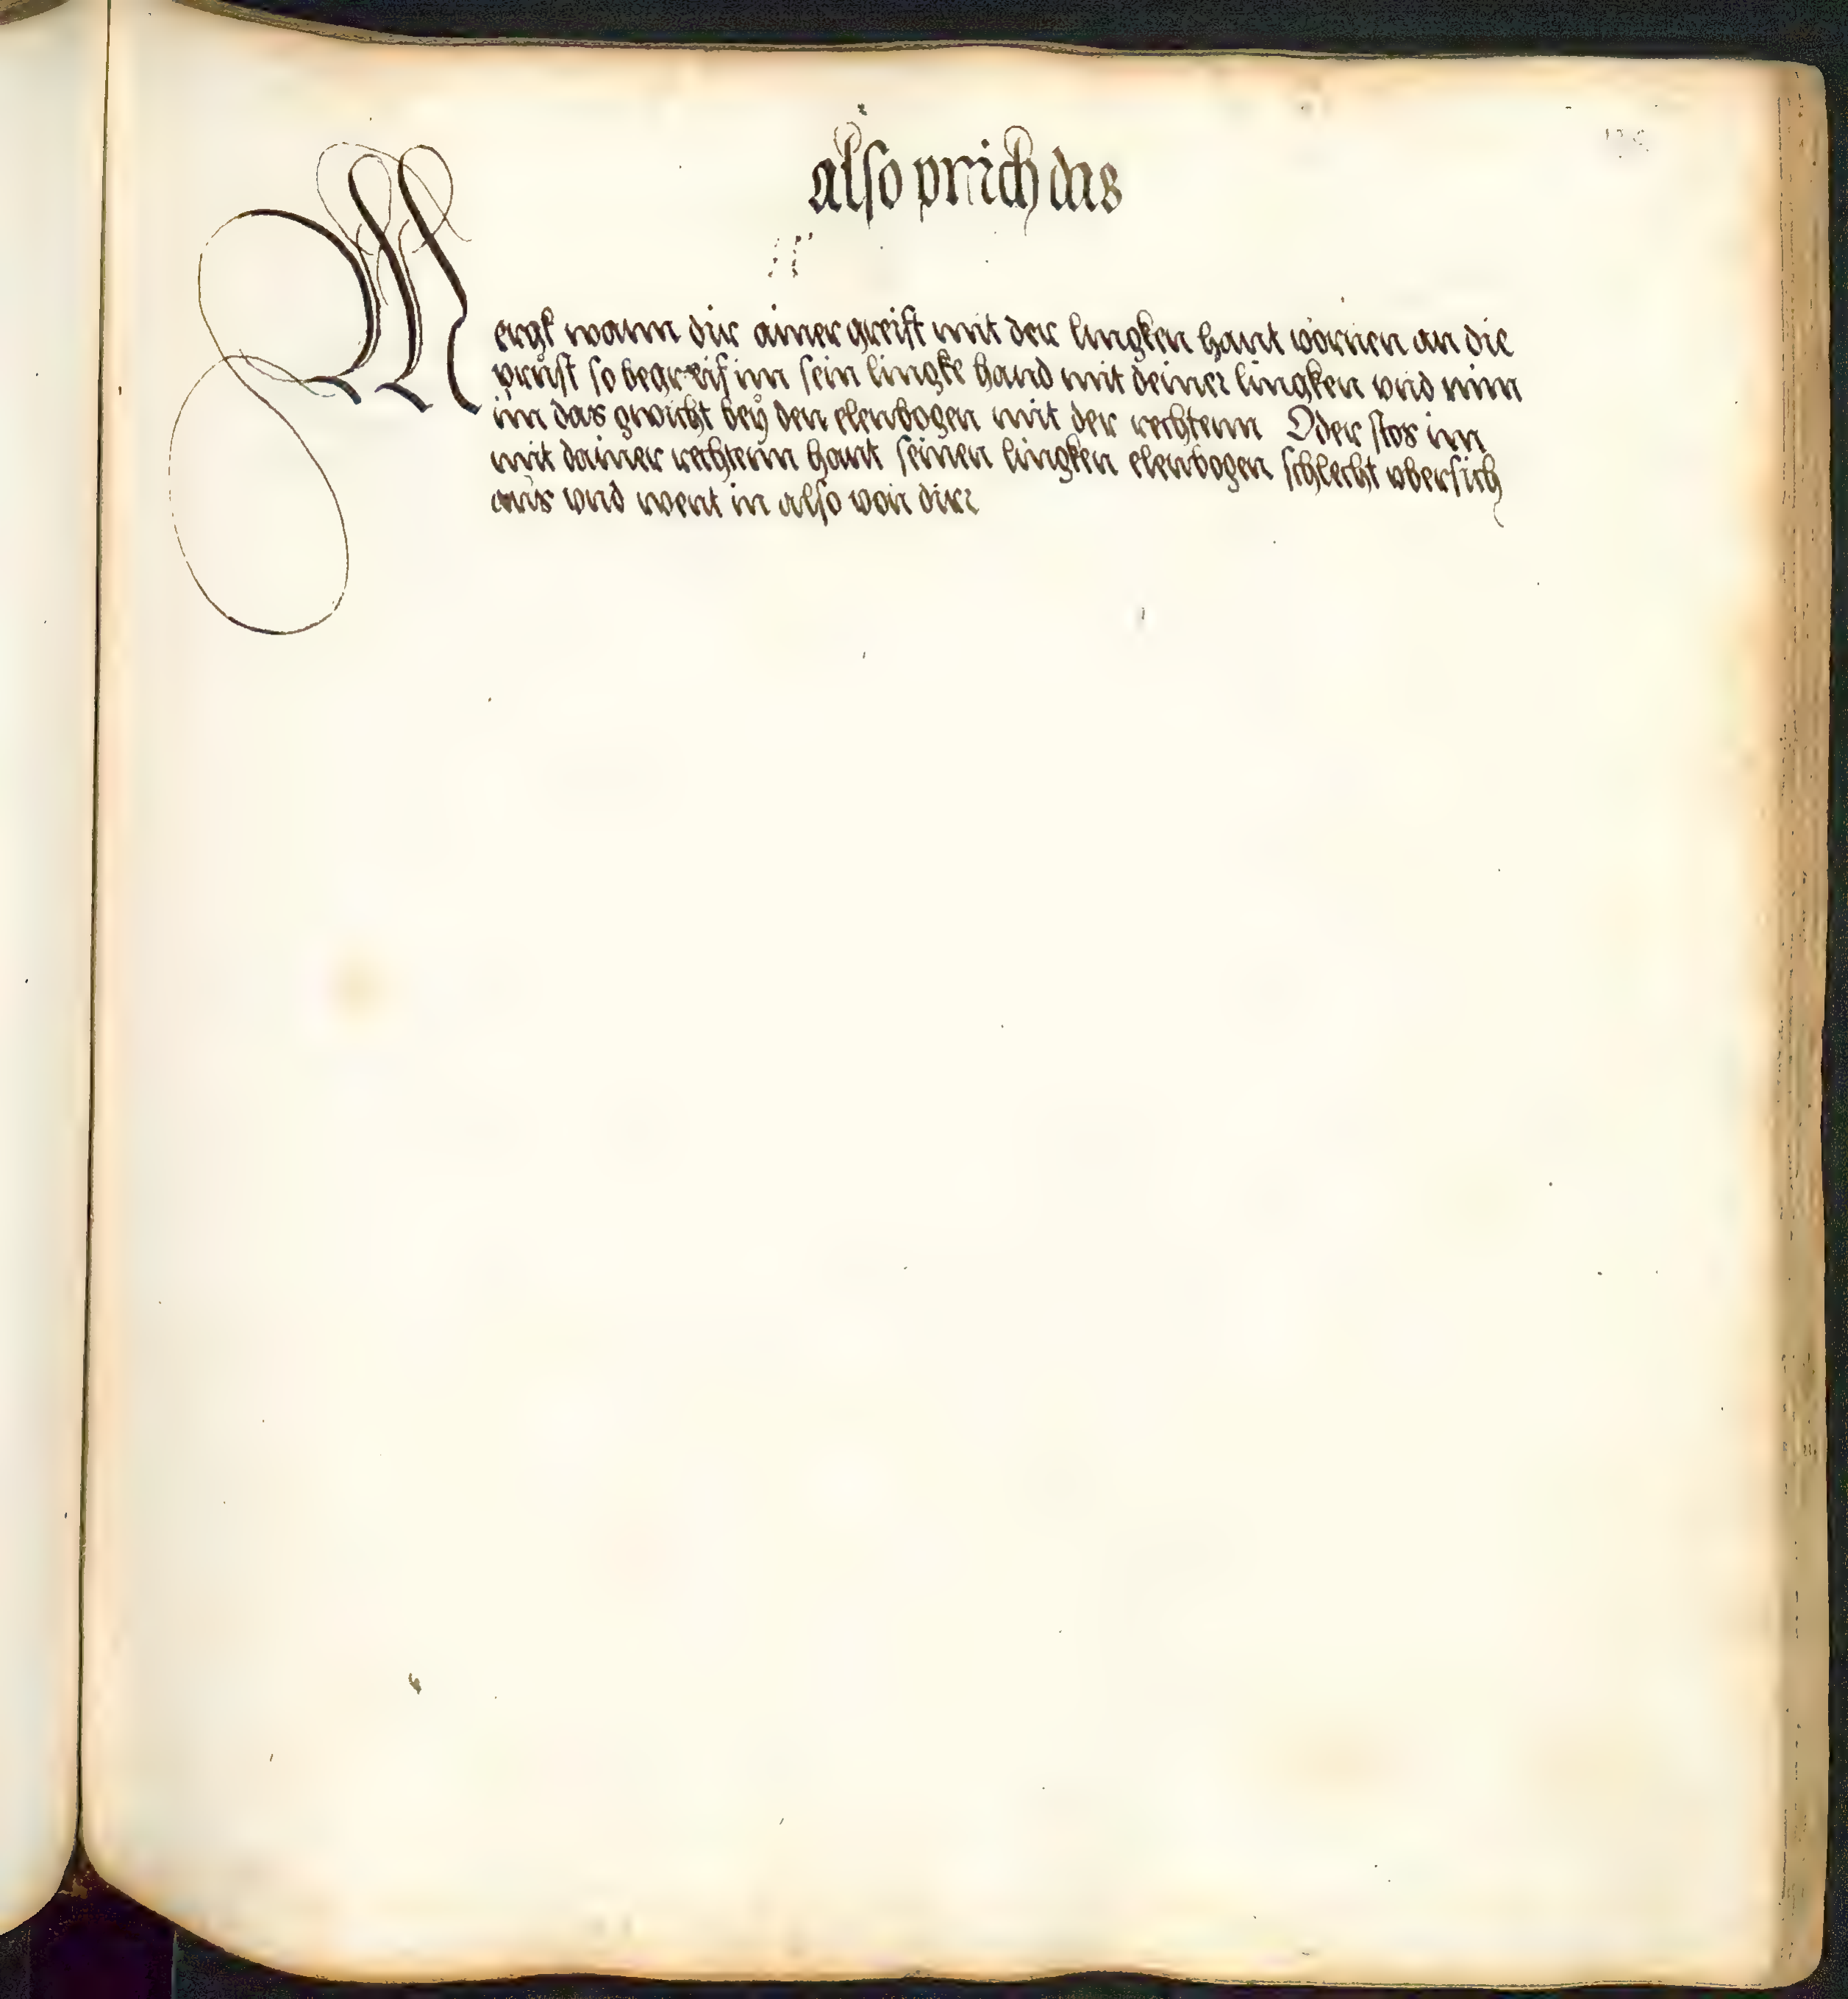 also prich das
Mergk wann dir ainer greift mit der lingken hant vornen an die
prust so begreif im sein lingke hand mit deiner lingken vnd nim
im das gwicht beÿ den elenbogen mit der rechtenn Oder stos im
mit dainer rechtenn hant seinen lingken elenbogen schlecht vbersich
aus vnd went in also von dir